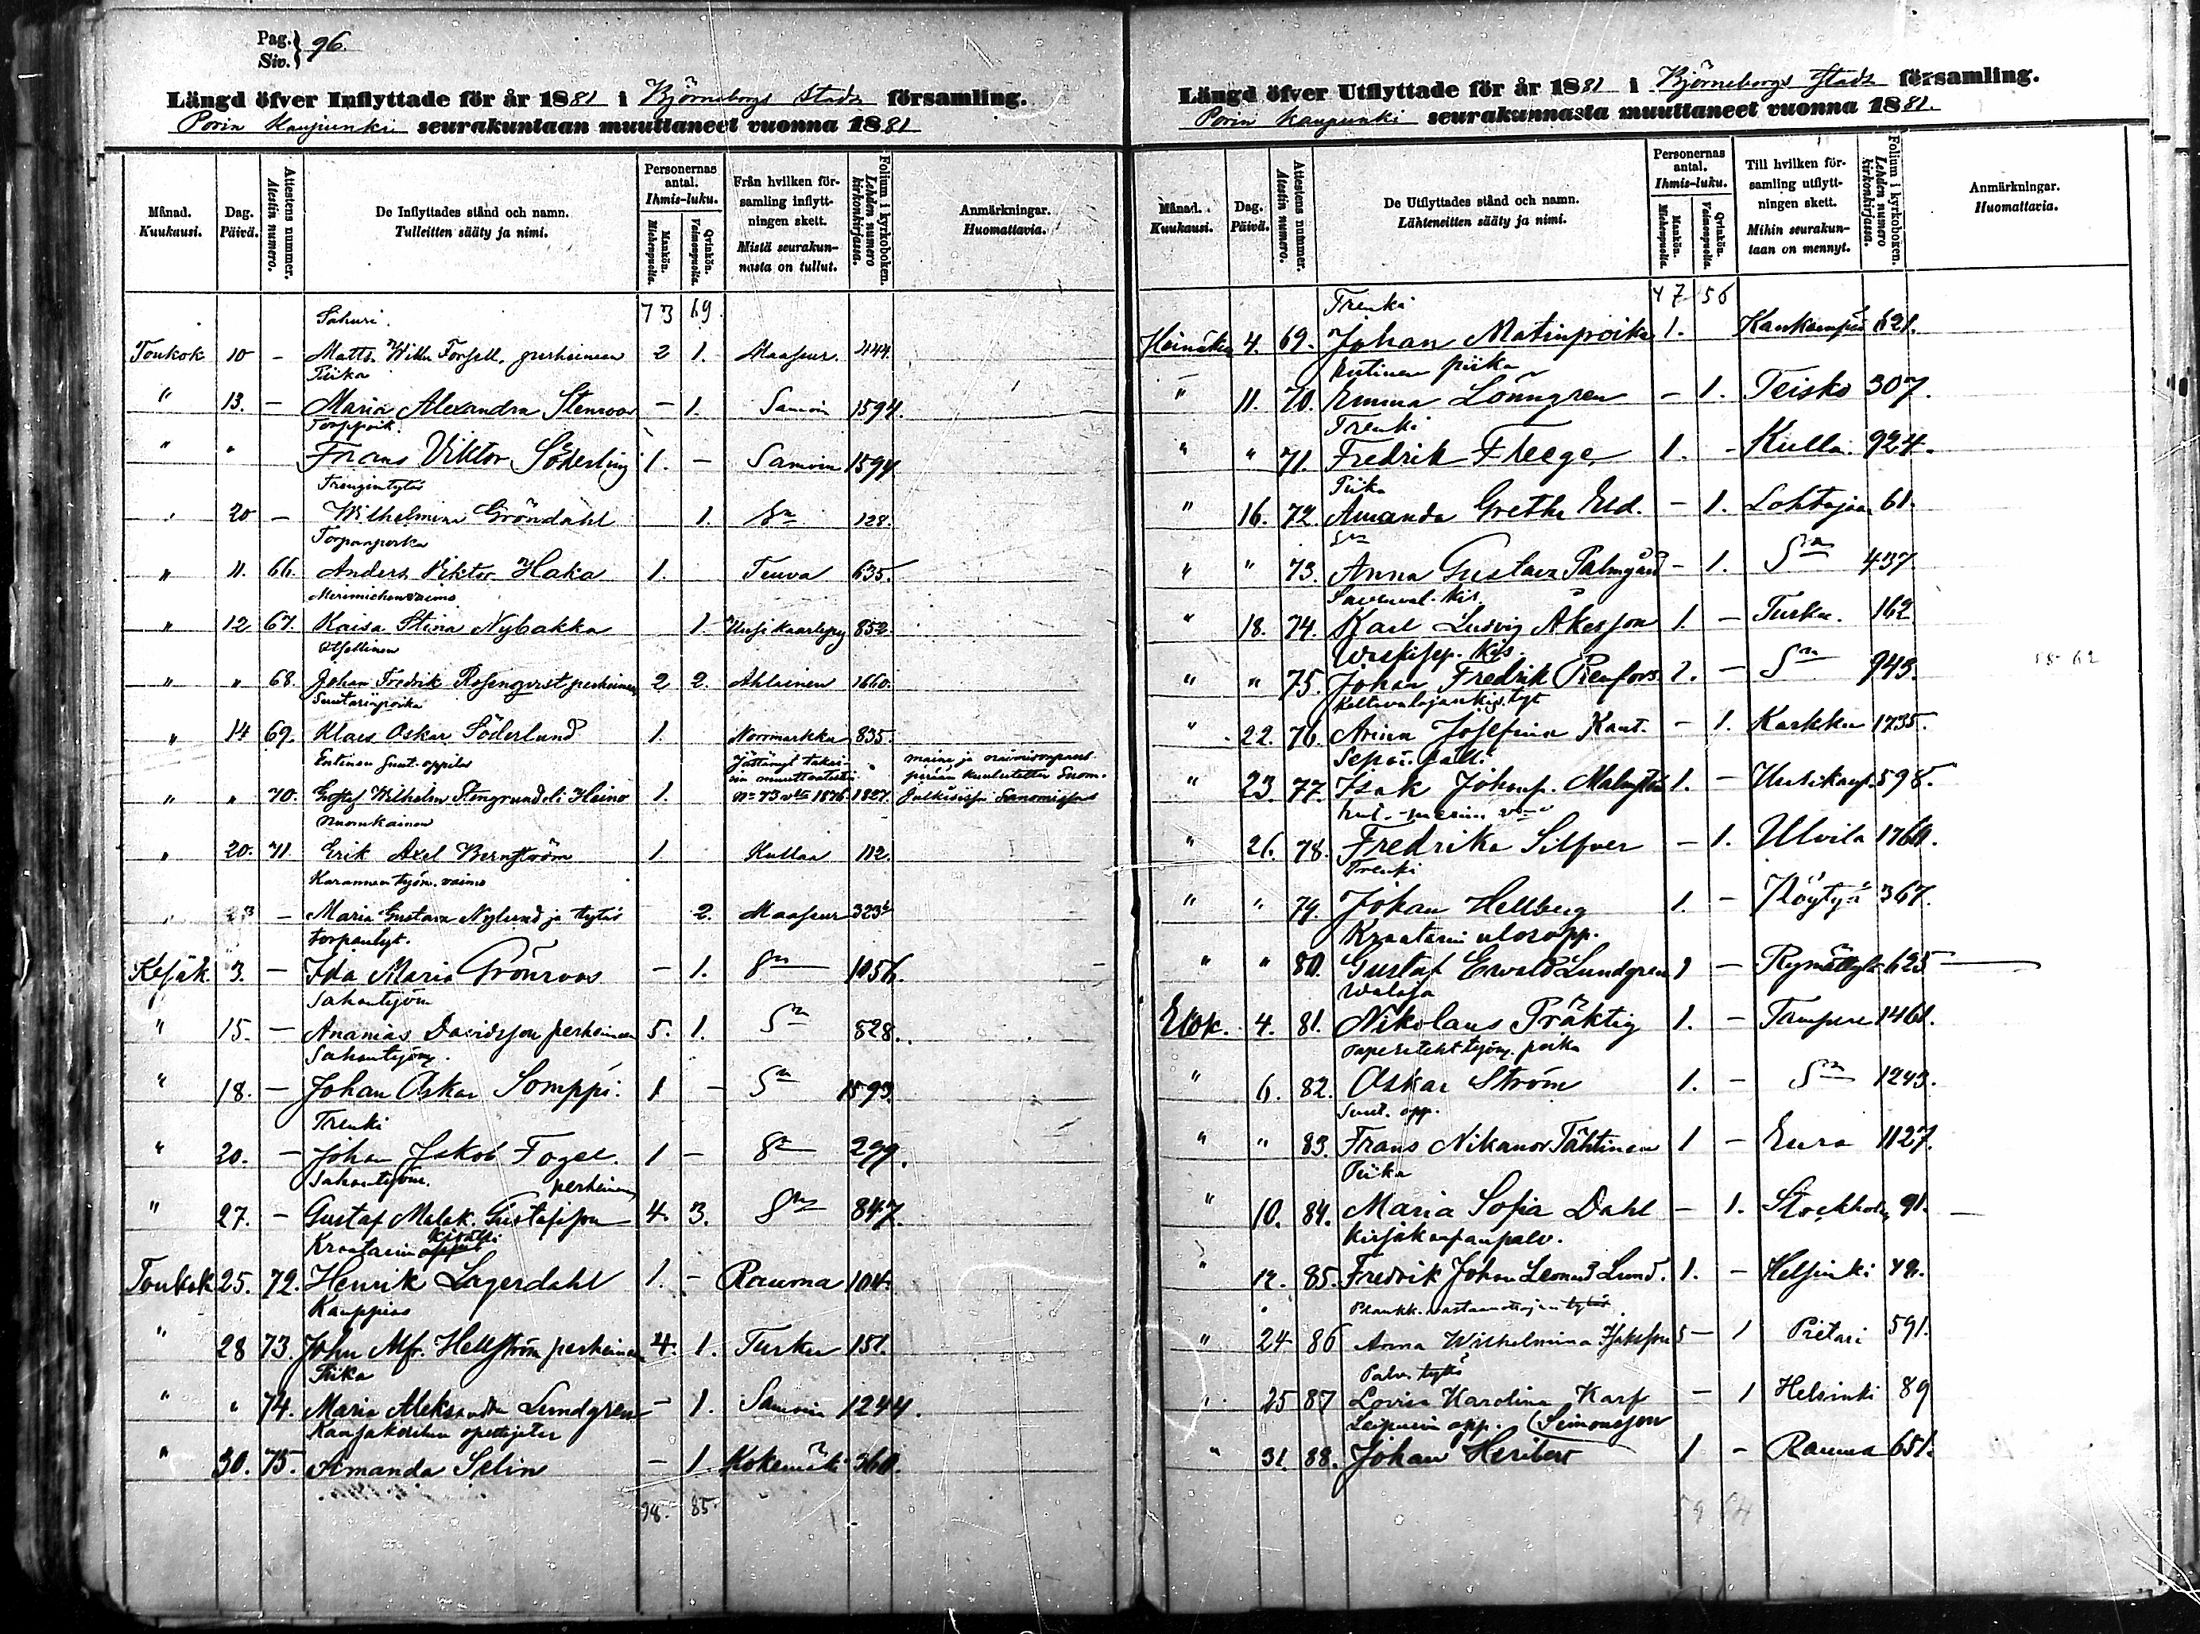 Pag. Siv. } 96.
Längd öfver Inflyttade för år 1881 i Björneborgs Stads församling.
Porin Kaupunki seurakuntaan muuttaneet vuonna 1881
Månad. Kuukausi. Dag. Päivä. Attestens nummer. Atestin numero. De Inflyttades stånd och namn. Tulleitten sääty ja nimi. Personernas antal. Ihmis-luku. Mankön. Miehenpuolia. Qvinkön. Vaimonpuolia. Från hvilken församling inflyttningen skett. Mistä seurakunnasta on tullut. Folium i kyrkoboken. Lehden numero kirkonkirjassa. Anmärkningar. Huomattavia.
73 69
Toukok 10 - Matts Wilh. Forsell, perheineen 2 1. Maaseur. 444.
Piika
" 13. - Maria Alexandra Stenroos - 1. Samoin 1594.
Torppoik.
" " Frans Viktor Söderling 1. - Samoin 1594
Trengintytö
" 20 - Wilhelmina Gröndahl 1. Sn 128.
Torpanpoika
" 11. 66. Anders Viktor Haka 1. Teuva 635.
Merimiehen vaimo
" 12 67. Kaisa Stina Nybakka 1. Uusikaarlepy 852.
Itsellinen
" " 68. Johan Fredrik Rosenqvist perheineen 2 2. Ahlainen 1660.
Suutarinpoika
" 14 69. Klaes Oskar Söderlund 1. Norrmarkku 835.
Entinen Suut. oppilas
" " 70. Gustaf Wilhelm Stengrund eli Heino 1. No 73 v:lta 1876 1827.
Nuorukainen
" 20. 71 Erik Axel Bernström 1. Kullaa 112.
vaimo
" 23 - Maria Gustava Nylund ja tytö 2. Maaseur 323
torpantyt.
Kesäk 3. - Ida Maria Grönroos - 1. Sn 1056.
Sahantyöm
" 15. - Ananias Davidsson perheineen 5. 1. Sn 828.
Sahantyöm.
" 18. - Johan Oskar Somppi. 1 - Sn 1593.
Trenki
" 20. - Johan Jakob Fogel. 1 - Sn 299.
Sahantyöm. perheineen
" 27. - Gustaf Malak. Gustafsson 4. 3. Sn 847.
Kraatarin kisälli
Toukok 25. 72. Henrik Lagerdahl 1. - Rauma 104.
Kauppias
" 28 73. John Alfr. Hellström perheineen 4. 1. Turku 151.
Piika
" " 74. Maria Aleksandra Lundgren - 1. Samoin 1244.
Kansakoulun opettajatar
" 30. 75. Amanda Selin - 1. Kokemäki 360.
98. 85.
Längd öfver Utflyttade för år 1881 i Björneborgs Stads församling.
Porin Kaupunki seurakunnasta muuttaneet vuonna 1881.
Månad. Kuukausi. Dag. Päivä. Attestens nummer. Atestin numero. De Utflyttades stånd och namn. Lähteneitten sääty ja nimi. Personernas antal. Ihmis-luku. Mankön. Miehenpuolia. Qvinkön. Vaimonpuolia. Till hvilken församling utflyttningen skett. Mihin seurakuntaan on mennyt. Folium i kyrkoboken. Lehden numero kirkonkirjassa. Anmärkningar. Huomattavia.
Trenki 47 56
Heinäku 4. 69. Johan Matinpoika 1. Kankaanpää 621.
Entinen piika
" 11. 70. Emma Lönngren - 1. Teisko 307.
Trenki
" " 71. Fredrik Fleege 1. - Kulla. 924.
Piika
" 16. 72. Amanda Gretha Eld. - 1. Lohtaja 61.
Sn
" " 73. Anna Gustava Palmgård - 1. Sn 437
" 18. 74. Karl Ludvig Åkesson 1. - Turku. 162
" " 75. Johan Fredrik - Sn 943.
58 62
" 22. 76. Josefina Kant. - 1. Karkku 1735.
" 23. 77. Isak Johans. Malmström 1. - Uusikaup. 598.
" 26. 78. Fredrika Silfver - 1. Ulvila 1760.
Trenki
" " 79. Johan Hellberg 1. - Pöytyä 367.
Kraatarin ulosopp.
" " 80. Gustaf Ewald Lundgren 1 - Rymättylä 625
Walaja
Elok. 4. 81. Nikolaus Präktig 1. - Tampere 1461.
Paperiteht. työm. poika
" 6. 82. Oskar Ström 1. - Sn 1243.
Suut. opp.
" " 83. Frans Nikanor Tähtinen 1 - Eura 1127.
Piika
" 10. 84. Maria Sofia Dahl - 1. Stockholm 91.
Kirjakaupanpalv.
" 12. 85. Fredrik Johan Leonard Lund. 1. - Helsinki 48.
Plankk. vastaanottajan tytö
" 24 86 Anna Wilhelmina Isaksson - 1 Pietari 591.
Palv. tyttö
" 25 87 Lovisa Karolina Karf - 1 Helsinki 89
Leipurin opp. (Simonsson
" 31. 88. Johan Heribert 1 - Rauma 651.
59 64